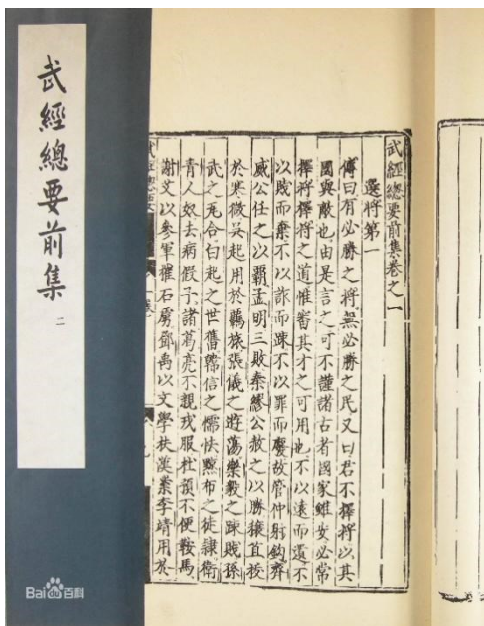 武經總要前集
二
武經總要前集卷之一
選將第一
傳曰有必勝之將無必勝之民又曰君不擇將以其
國與敵也由是言之可不謹諸古者國家雖安必常
擇將擇將之道惟審其才之可用也不以遠而遺不
以賤而棄不以詐而疎不以罪而廢故管仲射鈎齊
威公任之以霸孟明三敗秦繆公赦之以勝穰苴拔
於寒微吳起用於羇旅張儀之遊蕩樂毅之疎賤孫
武之瓦合白起之世舊韓信之懦怯黥布之徒隸衛
青人奴去病假子諸葛亮不親戎服杜預不便鞍馬
謝艾以參軍摧石虜鄧禹以文學扶漢業李靖用於
武經總要
一卷
Bai百科